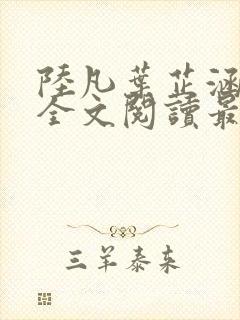 陸凡葉芷涵
全文閱讀最
三羊泰来